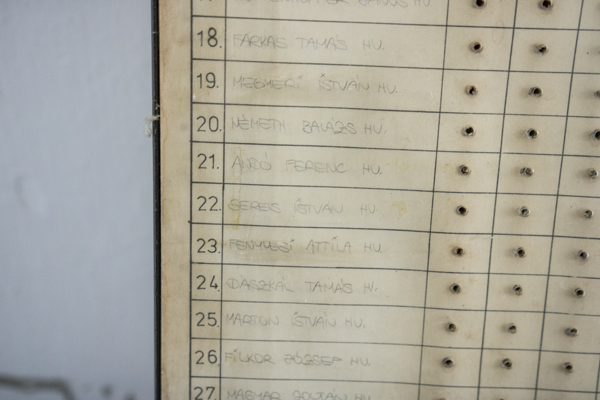 18. FARKAS TAMÁS HU.
19. MEGYERI ISTVÁN HU.
20. NÉMETH BALÁZS HU.
21. FERENC HU.
22. SERES ISTVÁN HU.
23. FENYVESI ATTILA HU.
24. DASZKÁL TAMÁS
25. MARTON ISTVÁN HU.
26. FILKOR JÓZSEF HU.
27. MAGYAR ZOLTÁN HU.